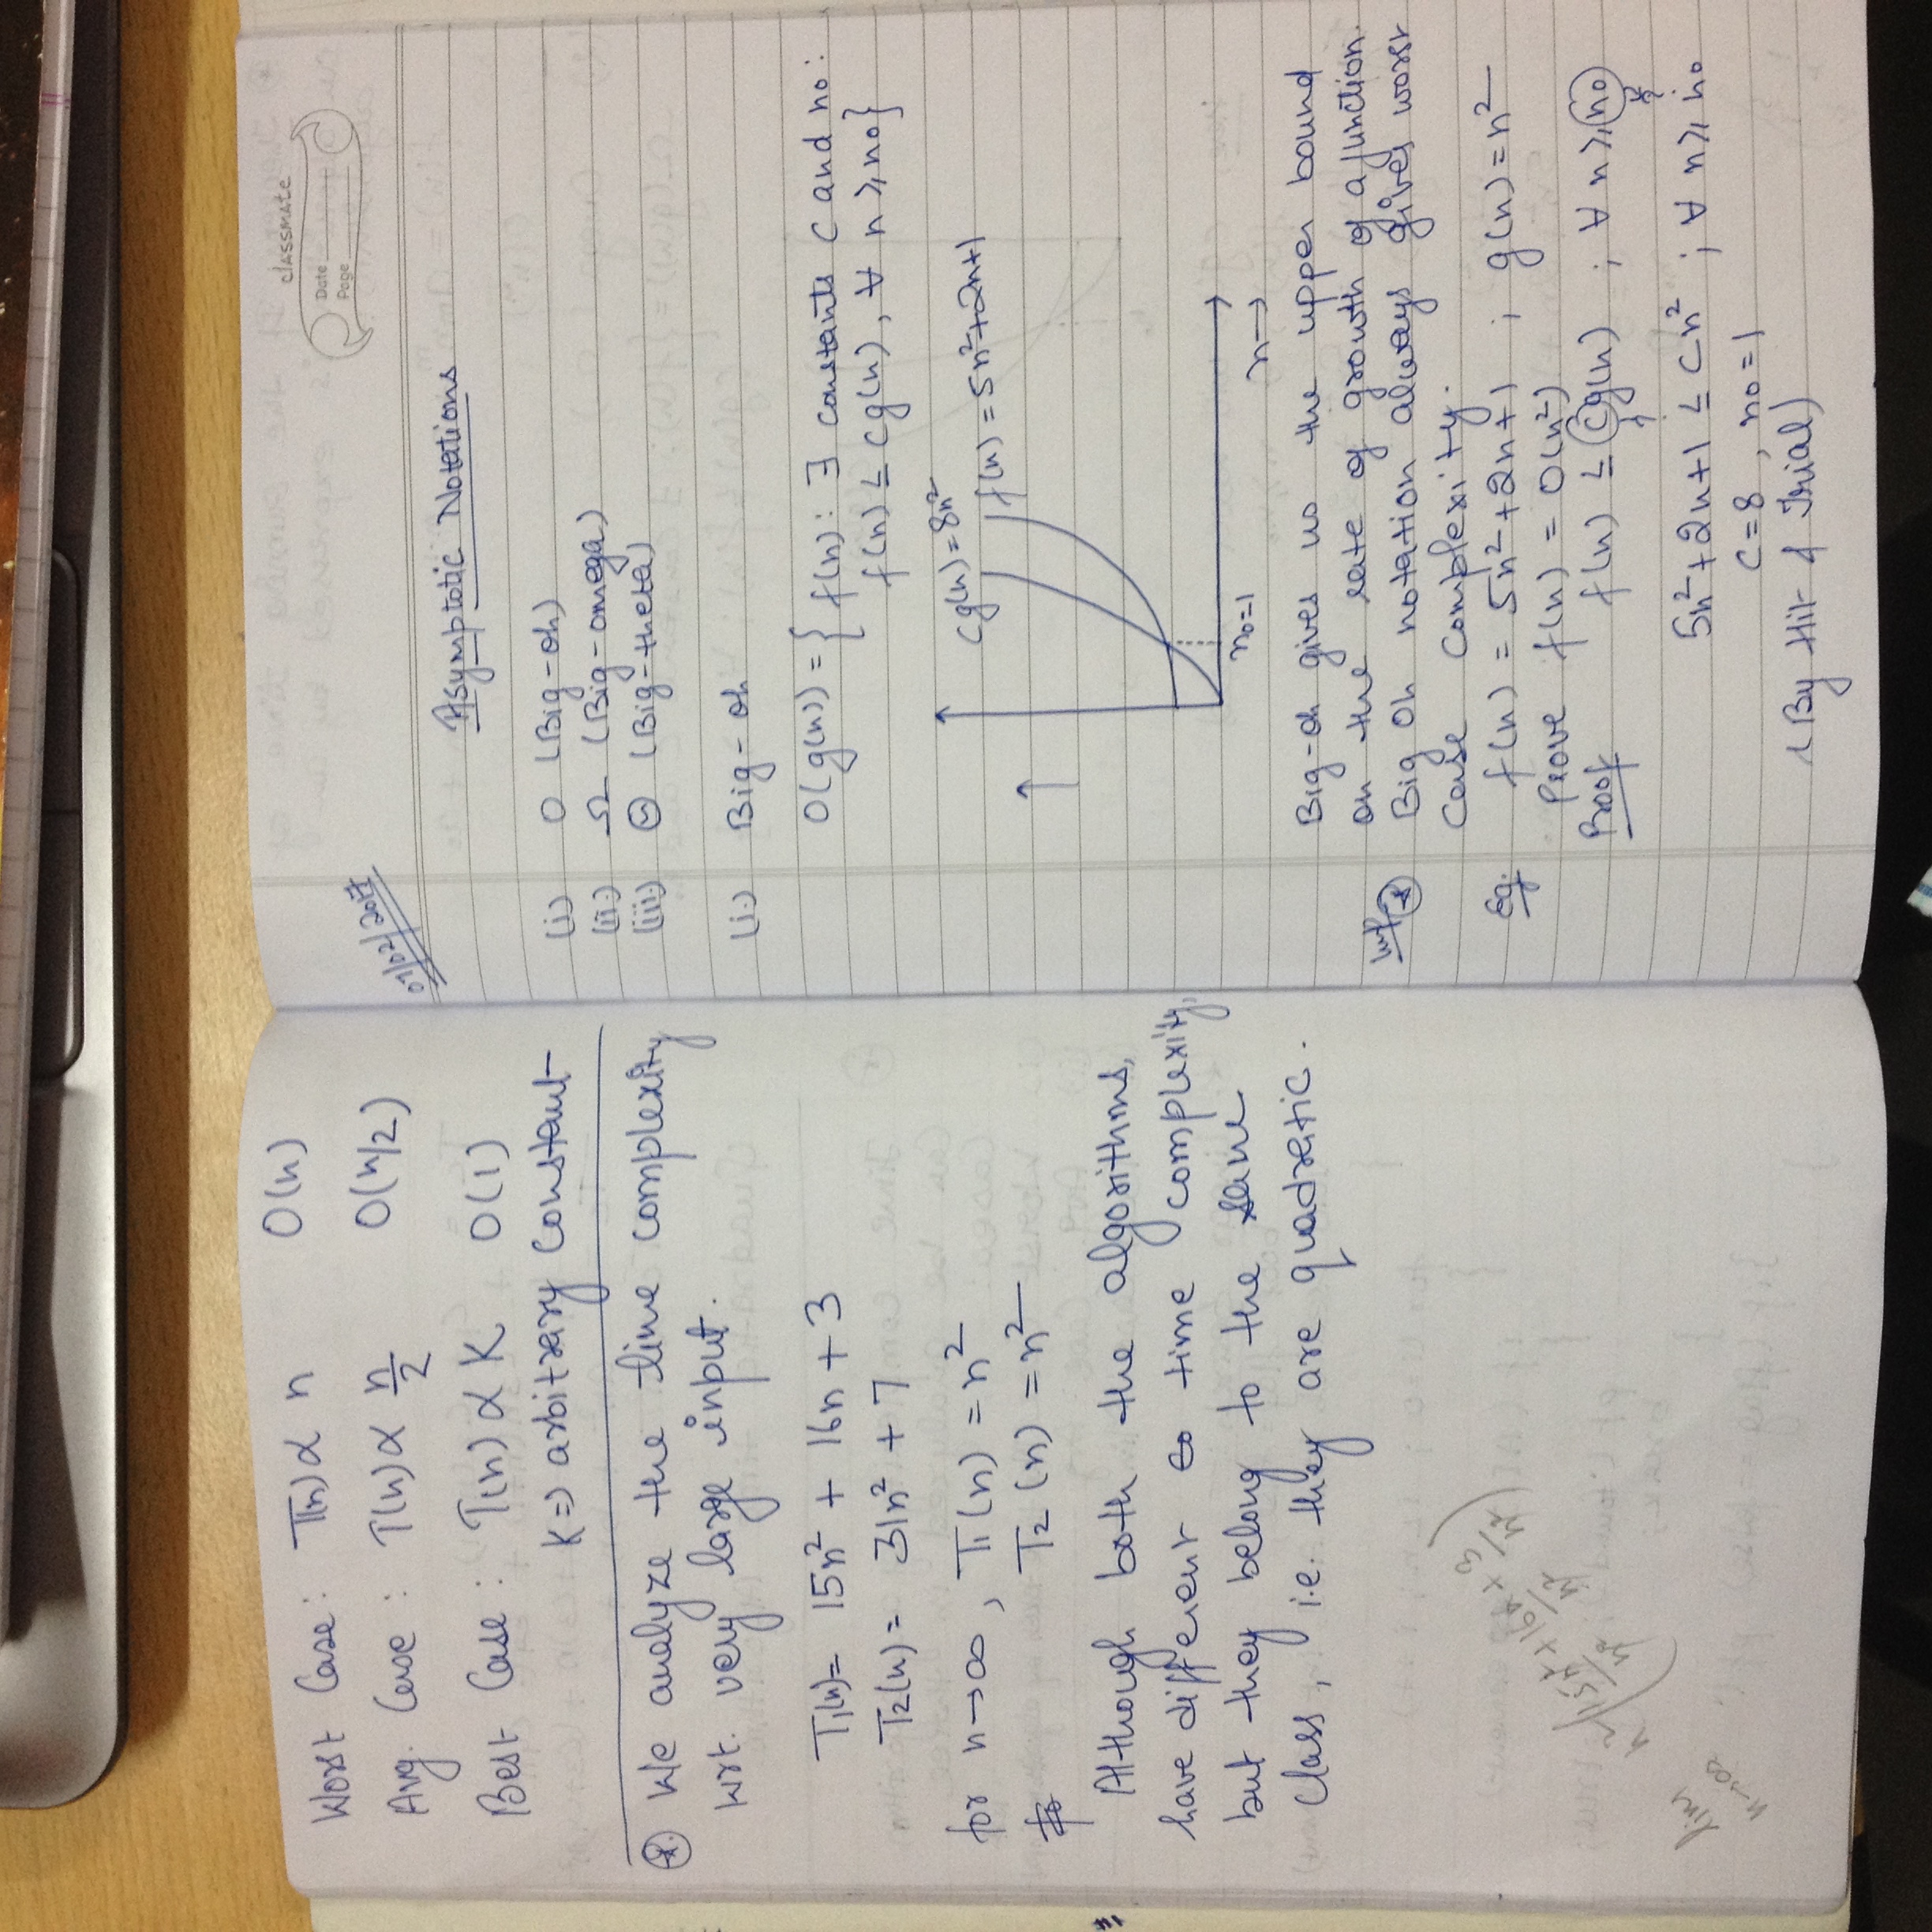 Worst Case : T(n) α n O(n)
Avg. Case : T(n) α n/2 O(n/2)
Best Case : T(n) α K O(1)
K => arbitrary constant
* We analyze the time complexity
wrt. very large input.
T1(n) = 15n² + 16n + 3
T2(n) = 31n² + 7
for n→∞, T1(n) = n²
T2(n) = n²
Although both the algorithms,
have different time complexity,
but they belong to the same
class, i.e. they are quadratic.
lim
n→∞
n² (15n²/n² + 16n/n² + 3/n²)
classmate
Date
Page
01/02/2017
Asymptotic Notations
(i) O (Big-oh)
(ii.) Ω (Big-omega)
(iii.) Θ (Big-theta)
(i.) Big-oh
O(g(n)) = { f(n) : ∃ constants c and n0 :
f(n) ≤ cg(n), ∀ n ≥ n0 }
cg(n) = 8n²
f(n) = 5n²+2n+1
n0=1
n→
Big-oh gives us the upper bound
on the rate of growth of a function.
Imp * Big oh notation always gives worst
case complexity.
Eg. f(n) = 5n²+2n+1 ; g(n) = n²
Prove f(n) = O(n²)
Proof f(n) ≤ cg(n) ; ∀ n ≥ n0
5n²+2n+1 ≤ cn² ; ∀ n ≥ n0
c=8, n0=1
(By Hit & Trial)